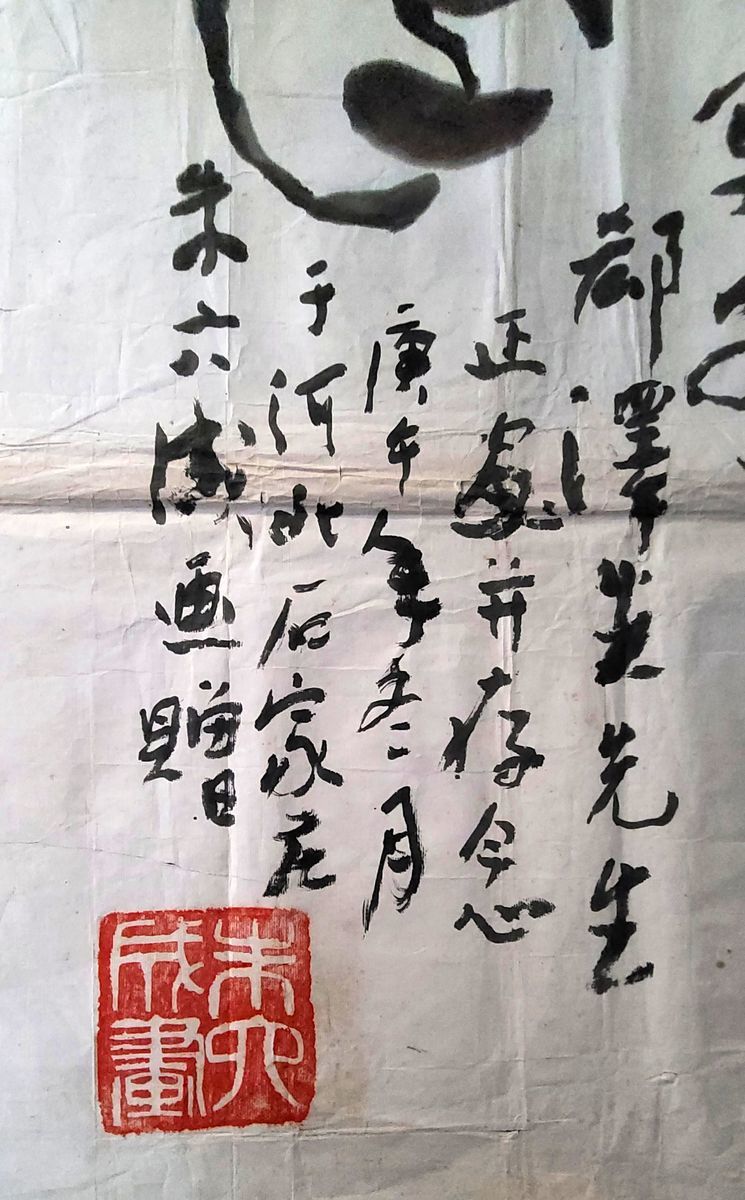 澤先生
正處并存念
庚午年冬月
于河北石家庄
朱六成画贈
朱六
成畫